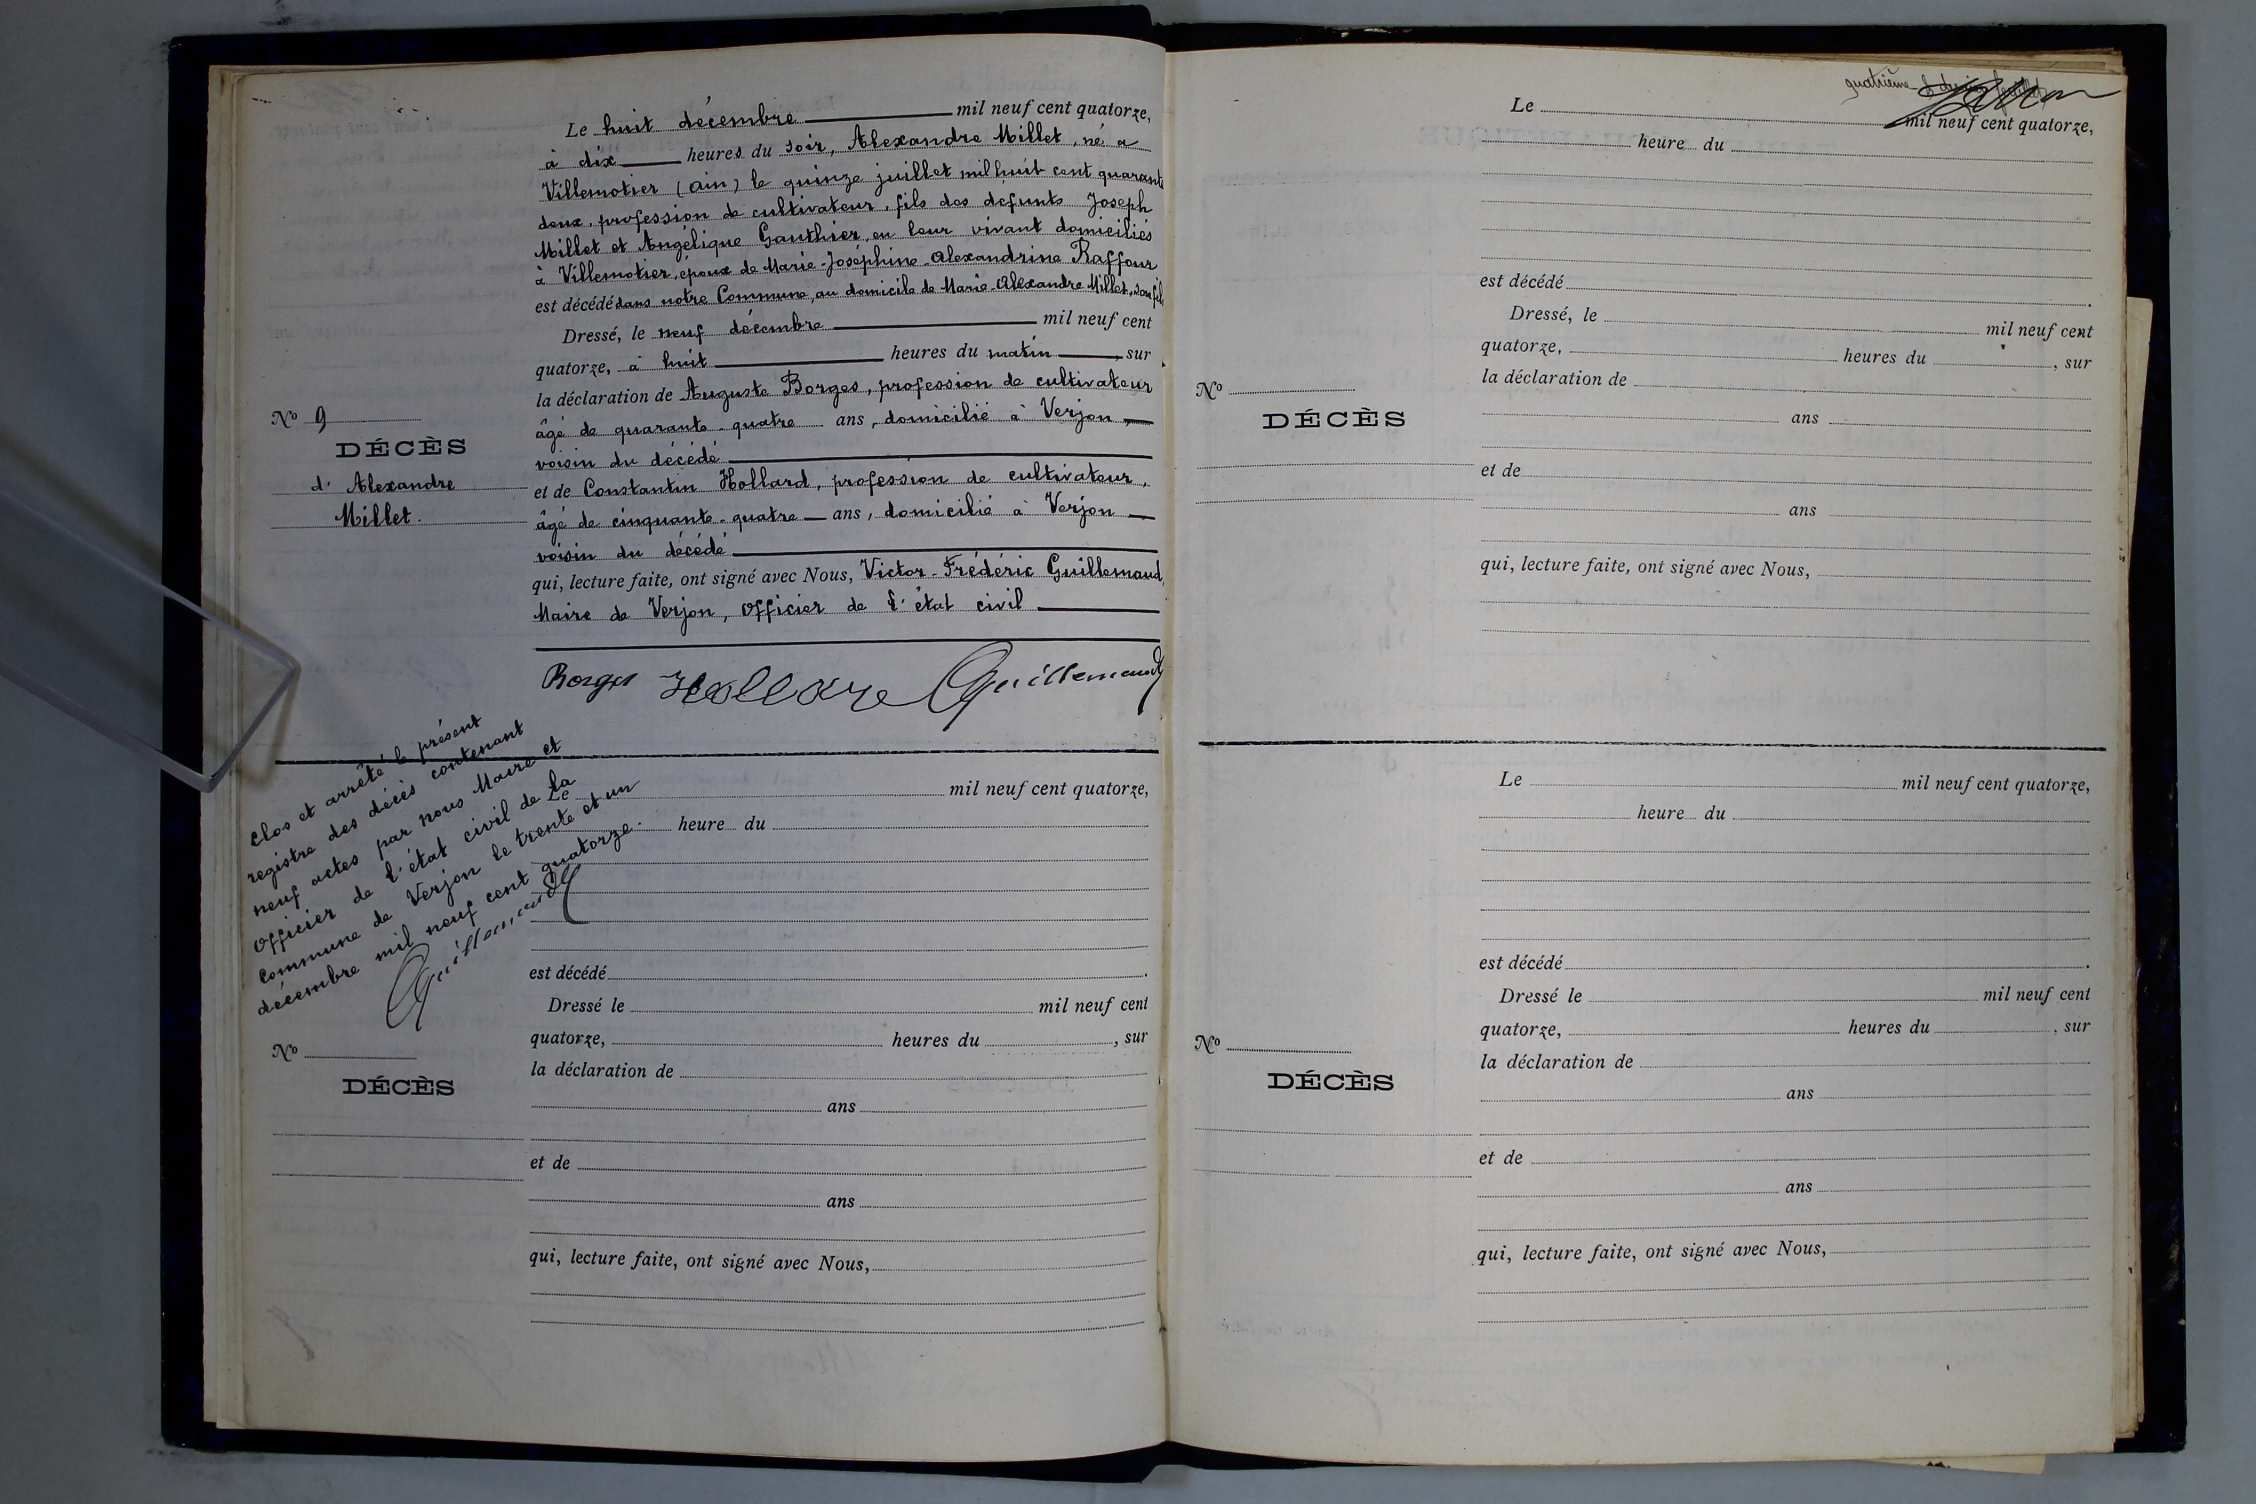 Le huit décembre mil neuf cent quatorze,
à dix heures du soir, Alexandre Millet, né à
Villemotier (Ain) le quinze juillet mil huit cent quarante
deux, profession de cultivateur, fils des défunts Joseph
Millet et Angélique Gauthier, en leur vivant domiciliés
à Villemotier, époux de Marie-Joséphine-Alexandrine Raffour
est décédé dans notre Commune, au domicile de Marie-Alexandre Millet, son fils
Dressé, le neuf décembre mil neuf cent
quatorze, à huit heures du matin, sur
la déclaration de Auguste Borges, profession de cultivateur
âgé de quarante-quatre ans, domicilié à Verjon,
voisin du décédé
et de Constantin Hollard, profession de cultivateur,
âgé de cinquante-quatre ans, domicilié à Verjon
voisin du décédé
qui, lecture faite, ont signé avec Nous, Victor-Frédéric Guillemaud,
Maire de Verjon, officier de l'état civil
No 9
DÉCÈS
d'Alexandre
Millet.
Borges Hollard Guillemaud
Clos et arrêté le présent
registre des décès contenant
neuf actes par nous Maire et
officier de l'état civil de la
commune de Verjon le trente et un
décembre mil neuf cent quatorze.
Guillemaud
Le mil neuf cent quatorze,
heure du
est décédé .
Dressé le mil neuf cent
quatorze, heures du , sur
la déclaration de
ans
et de
ans
qui, lecture faite, ont signé avec Nous,
No
DÉCÈS
quatrième et dernier feuillet
Le mil neuf cent quatorze,
heure du
est décédé .
Dressé, le mil neuf cent
quatorze, heures du , sur
la déclaration de
ans
et de
ans
qui, lecture faite, ont signé avec Nous,
No
DÉCÈS
Le mil neuf cent quatorze,
heure du
est décédé .
Dressé le mil neuf cent
quatorze, heures du , sur
la déclaration de
ans
et de
ans
qui, lecture faite, ont signé avec Nous,
No
DÉCÈS